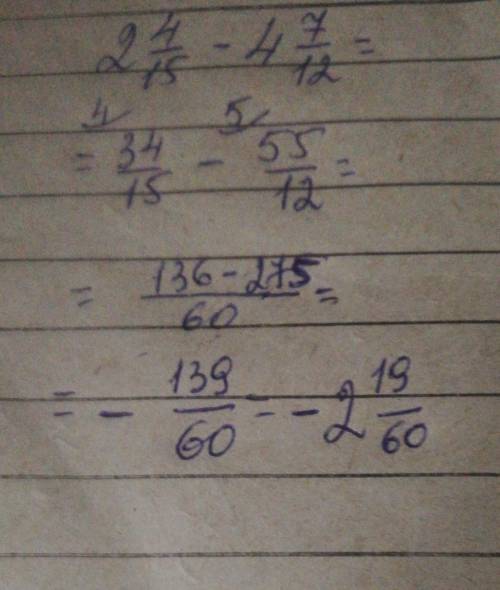 2 4/15 - 4 7/12 =
4 5
= 34/15 - 55/12 =
= 136 - 275/60 =
= - 139/60 = - 2 19/60